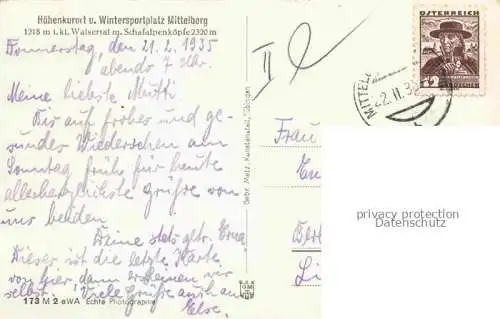 Höhenkurort u. Wintersportplatz Mittelberg
1218 m i. kl. Walsertal m. Schafalpenköpfe 2320 m
Donnerstag, den 21.2.1935
abends 7 Uhr.
Meine liebste Mutti
Bis auf frohes und ge-
sundes Wiedersehen am
Sonntag früh für heute
allerherzlichste Grüße von
uns beiden
Deine stets getr. Erna
Dieser ist die letzte Karte
von hier, dann erscheinen wir
selbst. Viele Grüße auch an
Else.
173 M 2 eWA Echte Photographie
Gebr. Metz, Kunstanstalt, Tübingen
II
ÖSTERREICH
12
MITTEL
22. II. 35
Frau
Ber
Li
privacy protection
Datenschutz